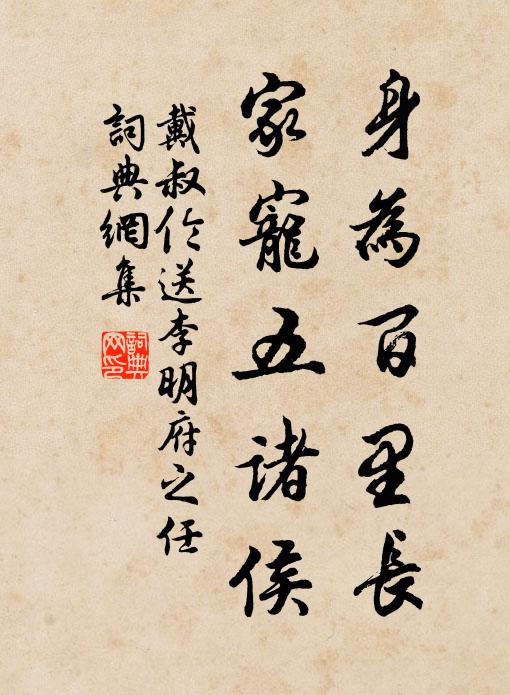 身為百里長
家寵五諸侯
戴叔伦送李明府之任
詞典網集
詞典網印